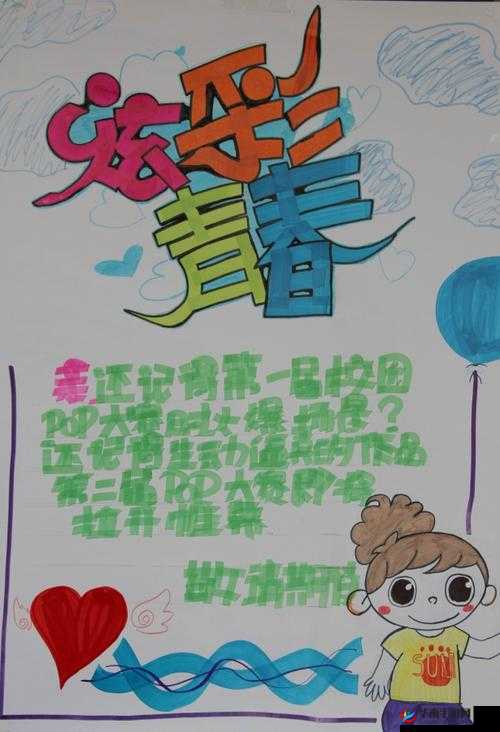 炫彩
青春
亲还记得第一届校园
POP大赛时火爆场景?
还记得生动逼真的作品
第二届POP大赛即将
拉开帷幕
敬请期待
SUN